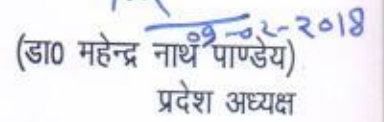 09-02-2018
(डा0 महेन्द्र नाथ पाण्डेय)
प्रदेश अध्यक्ष